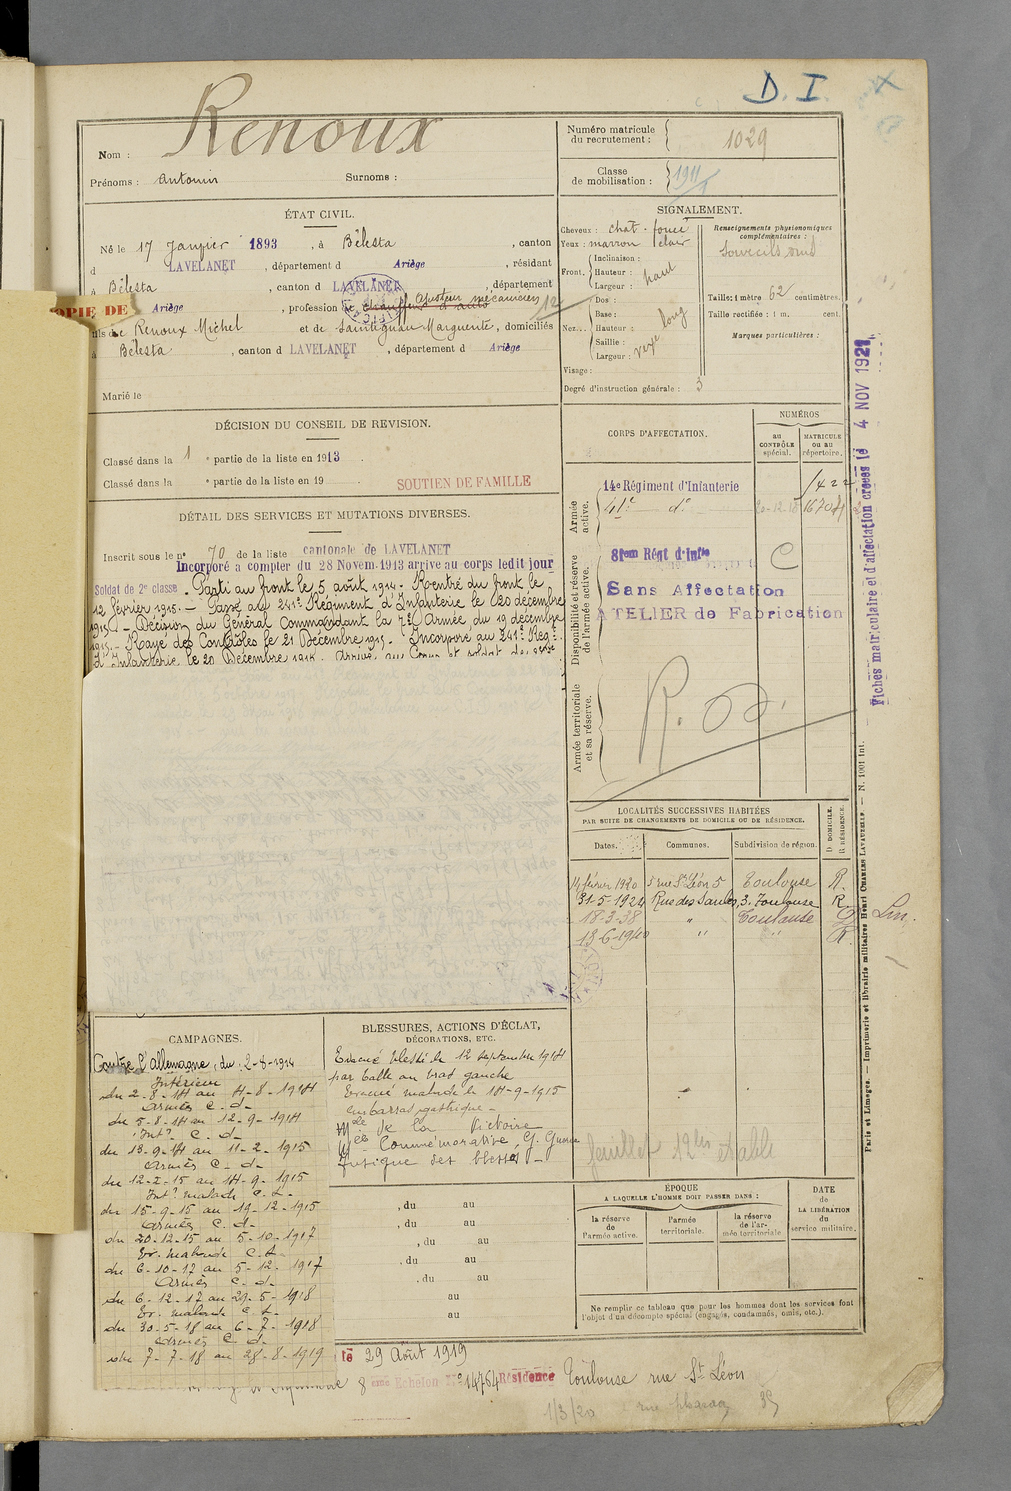 D. I.
Nom : Renoux
Prénoms : Antonin Surnoms :
Numéro matricule
du recrutement : 1029
Classe
de mobilisation : 1911
ÉTAT CIVIL.
Né le 17 Janvier 1893, à Bélesta, canton
d LAVELANET, département d Ariège, résidant
à Bélesta, canton d LAVELANET, département
OPIE DE
Ariège, profession de chauffeur d'auto Ajusteur mécanicien
fils de Renoux Michel et de Saintignan Marguerite, domiciliés
à Bélesta, canton d LAVELANET, département d Ariège
Marié le
SIGNALEMENT.
Cheveux : chat. foncé
Yeux : marron clair
Front. Inclinaison :
Hauteur : haut
Largeur :
Nez... Dos :
Base :
Hauteur : long
Saillie :
Largeur :
Visage :
Degré d'instruction générale : 3
Renseignements physionomiques
complémentaires :
Taille : 1 mètre 62 centimètres.
Taille rectifiée : 1 m. cent.
Marques particulières :
DÉCISION DU CONSEIL DE REVISION.
Classé dans la 1 e partie de la liste en 1913.
Classé dans la e partie de la liste en 19 .
SOUTIEN DE FAMILLE
DÉTAIL DES SERVICES ET MUTATIONS DIVERSES.
Inscrit sous le n° 70 de la liste cantonale de LAVELANET
Incorporé à compter du 28 Novem. 1913 arrivé au corps ledit jour
Soldat de 2e classe. Parti au front le 5 août 1914. Rentré du front le
12 février 1915. — Passé au 241e Régiment d'Infanterie le 20 décembre
1915. — Décision du Général Commandant la 7e Armée, du 19 décembre
1915. — Rayé des Contrôles le 21 Décembre 1915. Incorporé au 241e Reg.t
d'Infanterie, le 20 Décembre 1915. Arrivé au Corps et soldat de 2ème
CORPS D'AFFECTATION.
NUMÉROS
au
CONTRÔLE
spécial.
MATRICULE
ou au
répertoire.
Armée
active.
14e Régiment d'Infanterie
Disponibilité et réserve
de l'armée active.
81eme Régt d'Infie C
Sans Affectation
ATELIER de Fabrication
Armée territoriale
et sa réserve.
Fiches matriculaire et d'affectation créées le 4 NOV 1921
LOCALITÉS SUCCESSIVES HABITÉES
PAR SUITE DE CHANGEMENTS DE DOMICILE OU DE RÉSIDENCE.
Dates. Communes. Subdivision de région. D. DOMICILE. R. RÉSIDENCE.
14 février 1920 5 rue St Léon 5 Toulouse R.
31-5-1924 Rue des Saules, 3. Toulouse R.
18-3-38 " Toulouse
13-6-1940 " " R.
feuillet 12 bis établi
CAMPAGNES.
Contre l'Allemagne, du : 2-8-1914
Intérieur
du 2-8-14 au 4-8-1914
Armées C. d.
du 5-8-14 au 12-9-1914
Intr C. d.
du 13-9-14 au 11-2-1915
Armées C. d.
du 12-2-15 au 14-9-1915
Intr malade C. d.
du 15-9-15 au 19-12-1915
Armées C. d.
du 20-12-15 au 5-10-1917
Ev. malade C. d.
du 6-10-17 au 5-12-1917
Armées C. d.
du 6-12-17 au 29-5-1918
Ev. malade C. d.
du 30-5-18 au 6-7-1918
Armées C. d.
du 7-7-18 au 28-8-1919
BLESSURES, ACTIONS D'ÉCLAT,
DÉCORATIONS, ETC.
Evacué blessé le 12 septembre 1914
par balle au bras gauche
Evacué malade le 14-9-1915
embarras gastrique —
Mlle de la Victoire
Mlle Commémorative G. Guerre
Insigne des blessés —
, du au
, du au
, du au
, du au
, du au
au
au
ÉPOQUE
A LAQUELLE L'HOMME DOIT PASSER DANS :
la réserve
de
l'armée active.
l'armée
territoriale.
la réserve
de l'ar-
mée territoriale.
DATE
de
LA LIBÉRATION
du
service militaire.
Ne remplir ce tableau que pour les hommes dont les services font
l'objet d'un décompte spécial (engagés, condamnés, omis, etc.).
le 29 Août 1919
8 eme Echelon N° 14764 Résidence Toulouse rue St Léon
1/3/20
Paris et Limoges. — Imprimerie et librairie militaires Henri CHARLES-LAVAUZELLE. — N. 1001 Int.